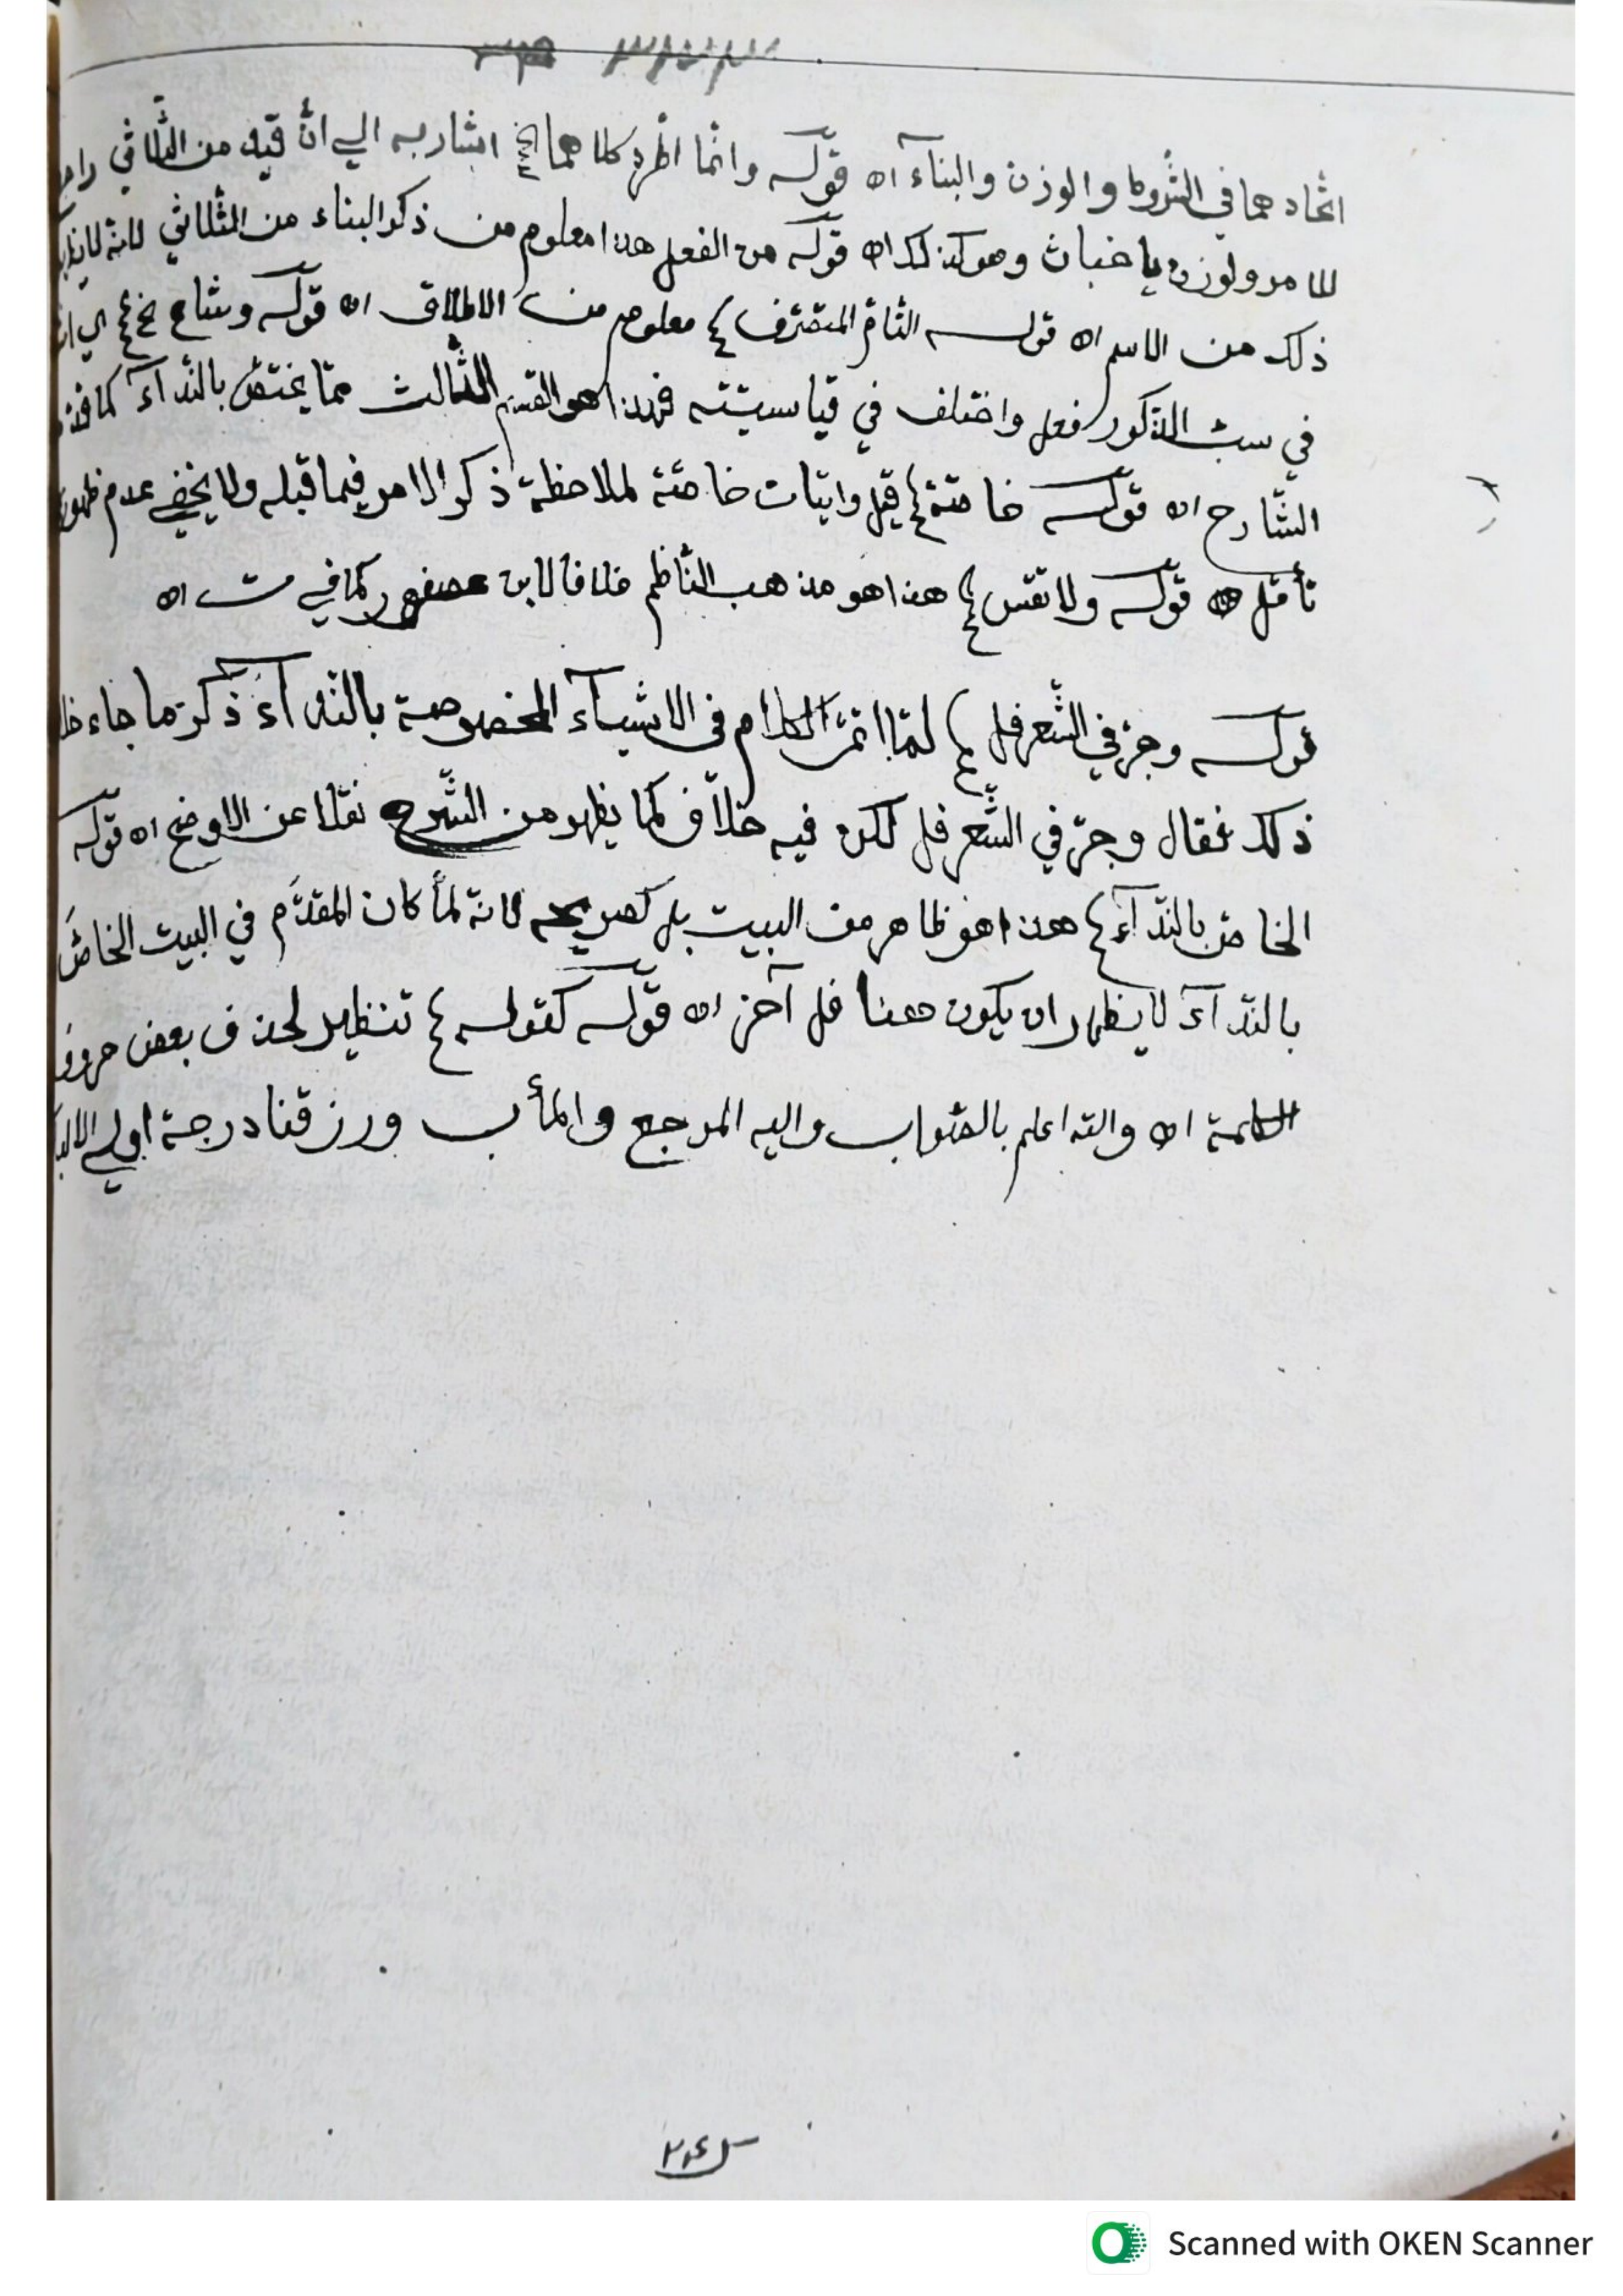 اتحادهما في الشروط والوزن والبنآء اه قوله وانما اطرد كلاهما الخ اشار به الي انّ قيد من الثّلاثي راجع
للامر ولوزن يا خباث وهو كذلك اه قوله من الفعل هذا معلوم من ذكر البناء من الثلاثي لانه
ذلك من الاسم اه قوله التّامّ المتصرّف معلوم من الاطلاق اه قوله وشاع الخ اي
في سبّ الذّكور فعل واختلف في قياسيّته فهذا هو القسم الثّالث ممّا يختصّ بالنّدآء كما
الشّارح اه قوله خاصّة قيل واتيان خاصّة لملاحظة ذكر الامر فيما قبله ولا يخفي عدم ظهوره
تأمّل اه قوله ولا تقس هذا هو مذهب النّاظم خلافا لابن عصفور كما في ت اه
قوله وجرّ في الشّعر فل لمّا اتمّ الكلام في الاشيآء المخصوصة بالنّدآء ذكر ما جاء
ذلك فقال وجرّ في الشّعر فل لكن فيه خلاف كما يظهر من الشّرح نقلا عن الاوضح اه قوله
الخاصّ بالنّدآء هذا هو ظاهر من البيت بل كصريحه لانه لمّا كان المقدّم في البيت الخاصّ
بالنّدآء لا يظهر ان يكون هنا فل آخر اه قوله كقوله تنظير لحذف بعض حروف
الكلمة اه والله اعلم بالصّواب واليه المرجع والمأب ورزقنا درجة اولي الالباب
Scanned with OKEN Scanner